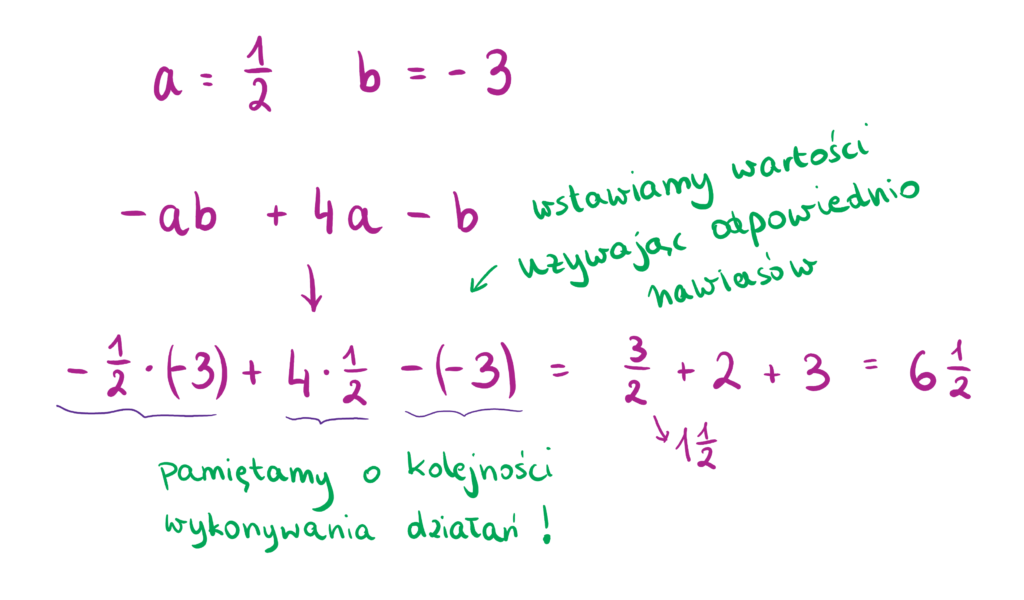 a = 1/2 b = -3
-ab + 4a - b
wstawiamy wartości
używając odpowiednio
nawiasów
- 1/2 · (-3) + 4 · 1/2 - (-3) = 3/2 + 2 + 3 = 6 1/2
1 1/2
pamiętamy o kolejności
wykonywania działań !